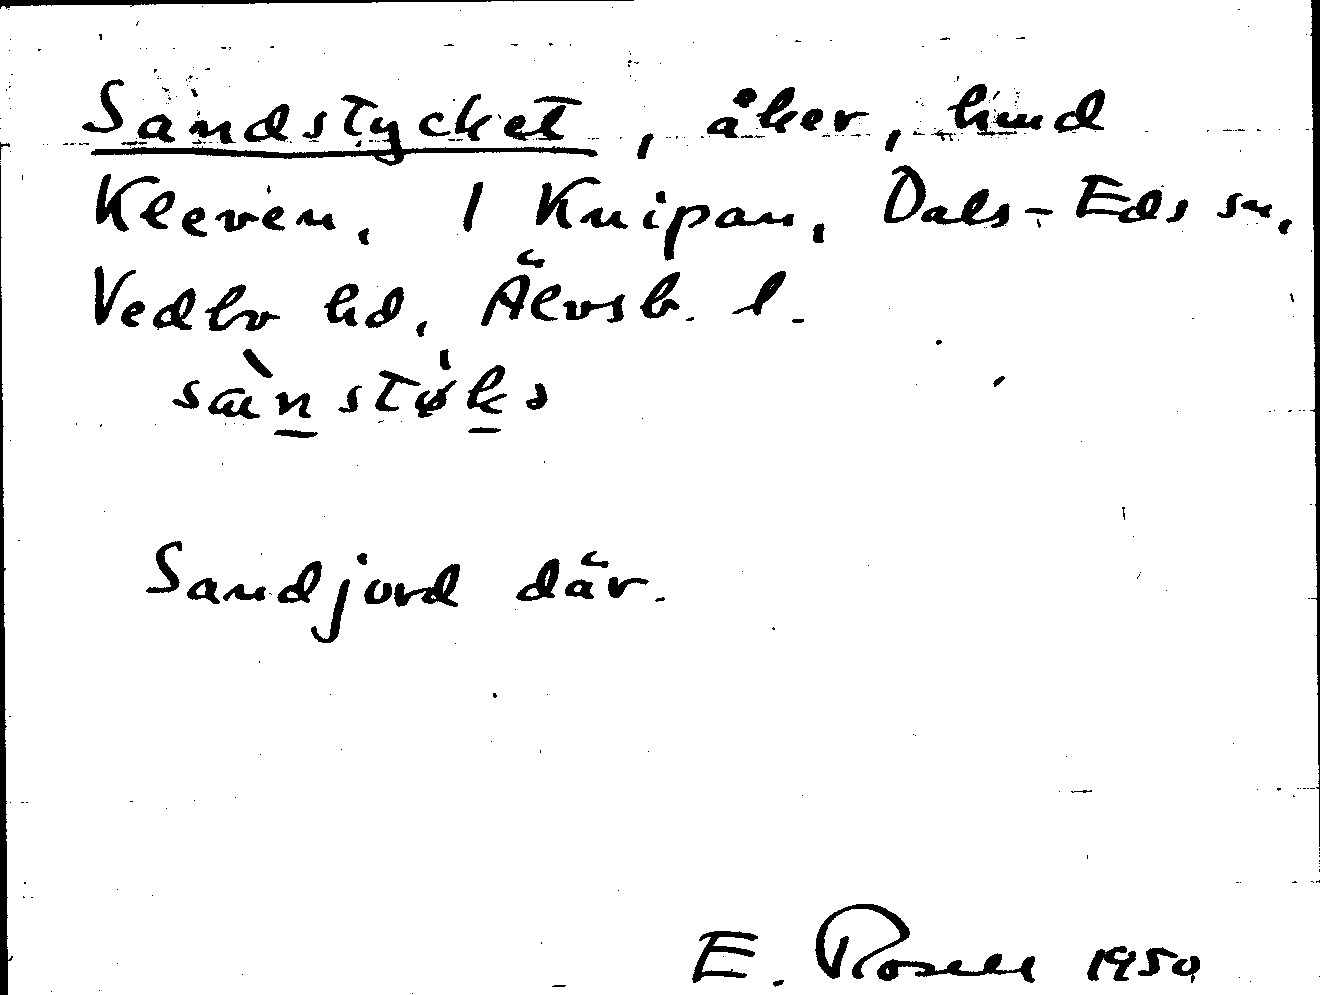 Sandstycket, åker, hmd
Kleven, 1 Knipan, Dals-Eds sn,
Vedbo hd, Älvsb. l.
sànstø̀kə
Sandjord där.
E. Rosell 1950